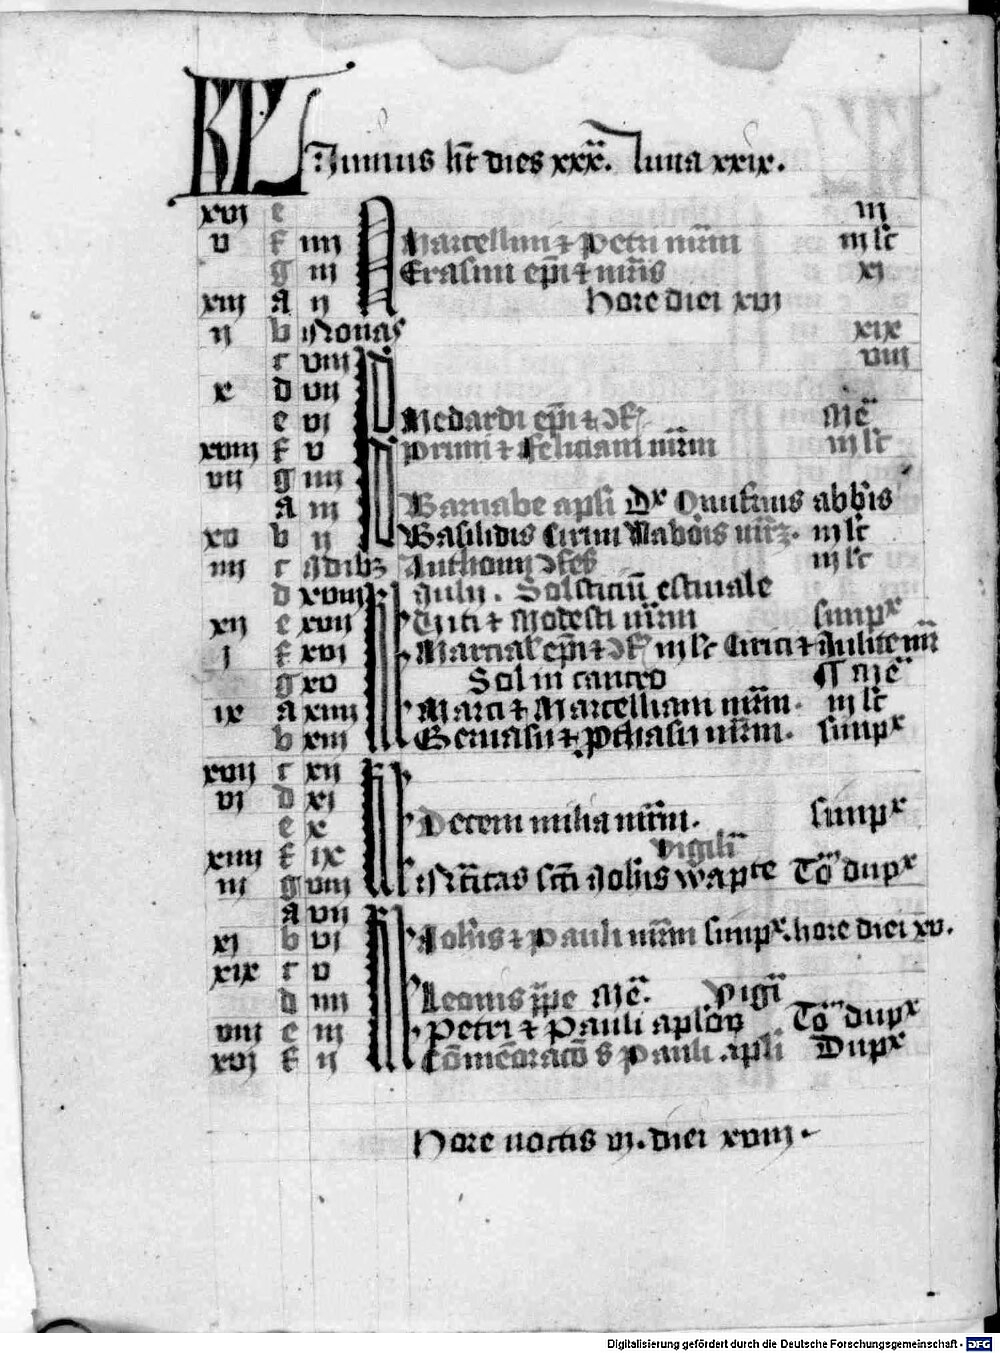 KL Junius ht dies xxx. luna xxix.
xvj e iij
v f iiij Marcellini ⁊ Petri mrm iij lc
g iij Erasmi epi ⁊ mris xj
xiij A ij hore diei xvij
ij b Nonas xix
c viij viij
x d vij
e vj Medardi epi ⁊ ɔf Mē
xviij f v Primi ⁊ feliciani mrm iij lc
vij g iiij
A iij Barnabe apli Dx Onufrius abbis
xv b ij Basilidis Cirini Naboris mrz. iij lc
iiij c ydibz Anthonij ɔfes iij lc
d xviij Julij. Solsticiū estiuale
xij e xvij Viti ⁊ Modesti mrm simpx
j f xvj Marcial epi ⁊ ɔf iij lc Cirici ⁊ Julite mr
g xv Sol in cancro Mē
ix A xiiij Marci ⁊ Marcelliani mrm. iij lc
b xiij Geruasij ⁊ Pthasij mrm. simpx
xvij c xij
vj d xj
e x Decem milia mrm. simpx
xiiij f ix vigili
iij g viij Natitas scti Johis wapte To dupx
A vij
xj b vj Johis ⁊ Pauli mrm simpx. hore diei xv.
xix c v
d iiij Leonis ppe Mē. vigi
viij e iij Petri ⁊ Pauli aplov To dupx
xvj f ij Comeoraco s Pauli apli Dupx
Hore noctis vj. diei xviij.
Digitalisierung gefördert durch die Deutsche Forschungsgemeinschaft - DFG